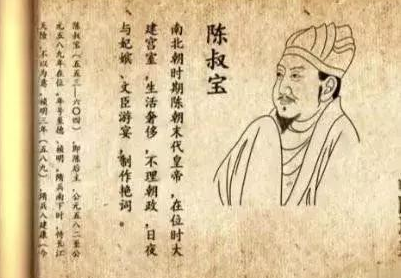 陈叔宝
南北朝时期陈朝末代皇帝，在位时大
建宫室，生活奢侈，不理朝政，日夜
与妃嫔、文臣游宴，制作艳词。
陈叔宝（五五三—六〇四），即陈后主，公元五八二至公
元五八九年在位，年号至德、祯明。隋兵南下时，恃长江
天险，不以为意。祯明三年（五八九），隋兵入建康（今